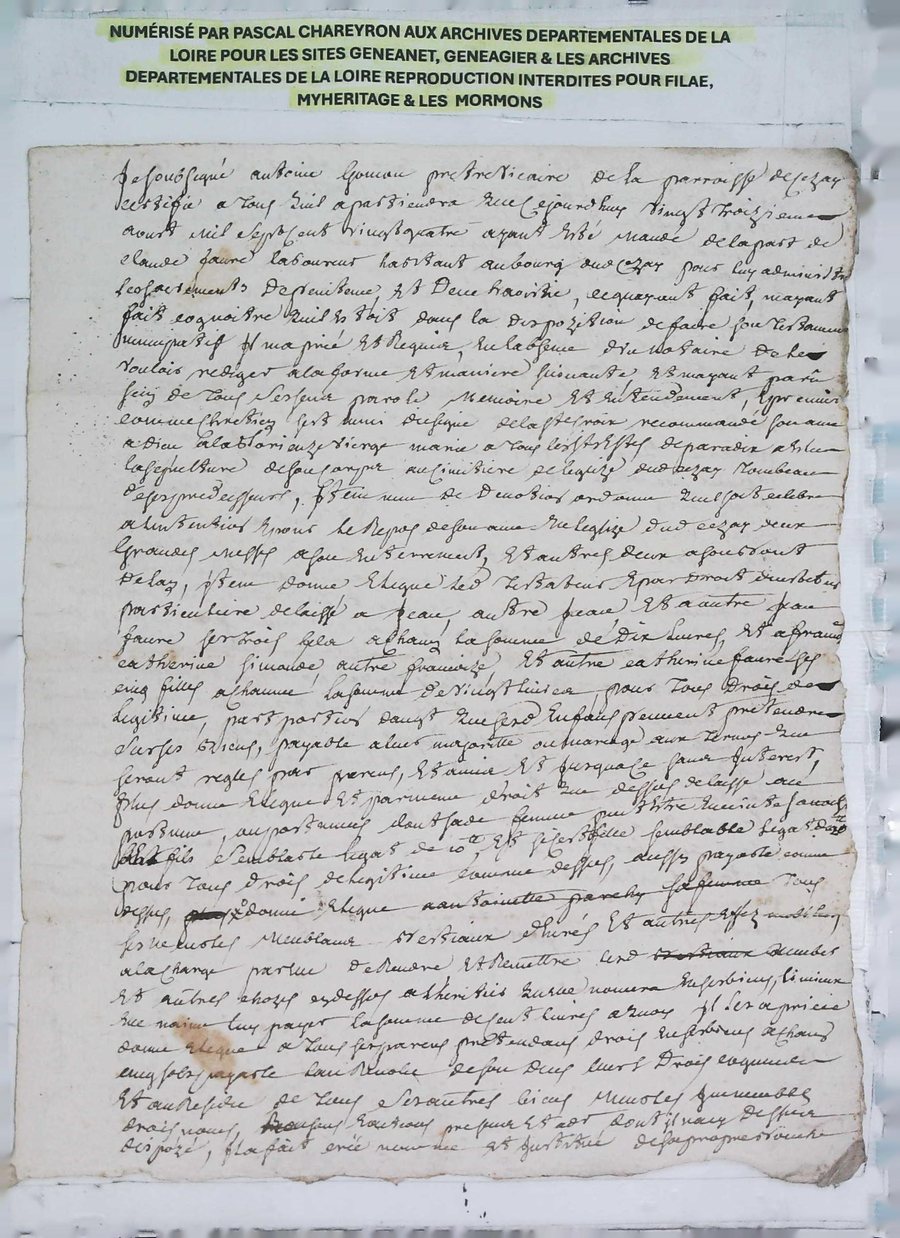 NUMÉRISÉ PAR PASCAL CHAREYRON AUX ARCHIVES DEPARTEMENTALES DE LA
LOIRE POUR LES SITES GENEANET, GENEAGIER & LES ARCHIVES
DEPARTEMENTALES DE LA LOIRE REPRODUCTION INTERDITES POUR FILAE,
MYHERITAGE & LES MORMONS
Je soubsigné antoine pretre vicaire de la parroisse de Cezay
certifie a tous quil apartiendra que cejourdhuy vingt troizieme
aoust mil sept cent vingt quatre ayant esté mandé de la part de
claude faure laboureur habitant au bourg dud Cezay pour luy administrer
les sacrements de penitence et deucharistie, ce quayant fait, mayant
fait cognoitre quil estoit dans la dispozition de faire son testament
nuncupatif il ma prié et requis, en labsence dun notaire de le
vouloir rediger a la forme et maniere suivante et mayant paru
sain de tous ses sens parole memoire et entendement, premier
comme chrestien sest muni du signe de la ste croix recommandé son ame
a dieu a la glorieuze vierge marie a tous les sts et stes de paradix
la sepulture de son corps au cimitiere de leglize dud cezay tombeau
de ses predecesseurs, item de devotion ordonne quil soit celebré
a lintention pour le repos de son ame en leglize dud cezay deux
grandes messes a son enterrement, et autres deux a son bout
de lan, item donne et legue led testateur par droit dinstitution
particuliere delaissé a jean, autre jean et autre jean
faure ses trois fils a chacun la somme de dix livres, et a
catherine simonde autre francoize, et autre catherine faure ses
cinq filles a chacune la somme de vingt livres pour tous droits de
legitime, part portion quesd enfans peuvent pretendre
sur ses biens, payable a leur majorité ou mariage aux termes que
seront reglés par parens, et amis et jusqua ce sans interest,
plus donne et legue et par meme droit que dessus delaisse au
postume, ou postumes dont sa de femme peut etre enceinte
fils semblable legat de 10ll, et si cest fille semblable legat de 20ll
pour tous droits de legitime comme dessus, aussy payable comme
dessus, donne et legue a antoinette sa femme tous
ses meubles bestiaux et autres
a la charge par elle de rendre et remettre lesd bestiaux
et autres choses cy dessus a lheritier quelle nomera
que luy payer la somme de cent livres a quoy il les a
donne et legue a tous ses parens pretendans droits en ses biens a chacun
cinq sols payable
et au residu de tous ses autres biens meubles immeubles
droits noms, raisons actions presens et a dont il na cy dessus
dispozé, il a fait créé nommé et institué de sa propre bouche